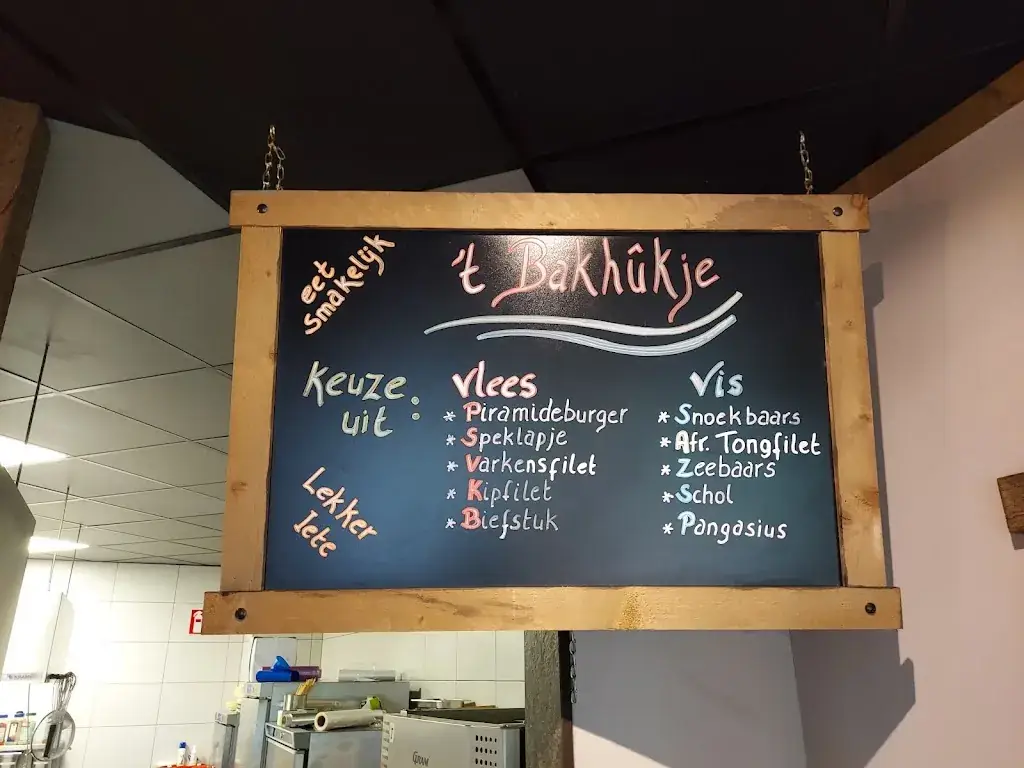 eet
Smakelijk
't Bakhûkje
Keuze
uit:
Lekker
Iete
Vlees
* Piramideburger
* Speklapje
* Varkensfilet
* Kipfilet
* Biefstuk
Vis
* Snoekbaars
* Afr. Tongfilet
* Zeebaars
* Schol
* Pangasius